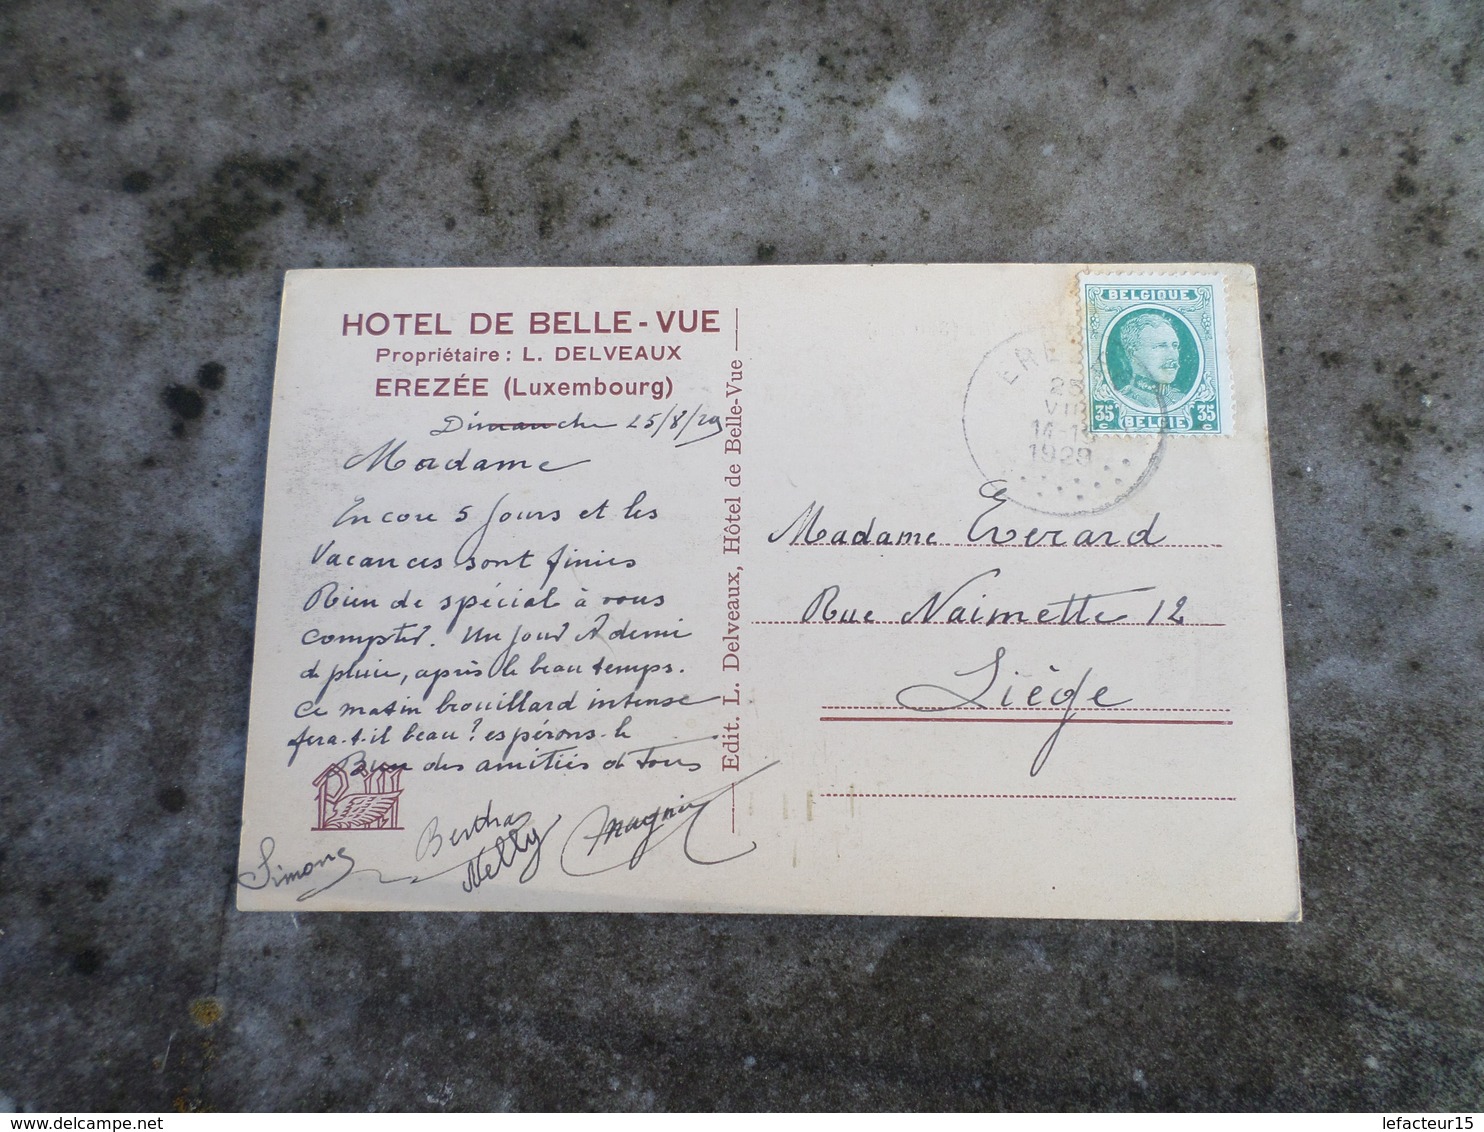 HOTEL DE BELLE-VUE
Propriétaire : L. DELVEAUX
EREZÉE (Luxembourg)
Dimanche 25/8/29
Madame
Encore 5 jours et les
Vacances sont finies
Rien de spécial à vous
compter. Un jour & demi
d pluie, après le beau temps.
Ce matin brouillard intense
fera-t-il beau? espérons-le
Bien des amitiés de Tous
Simone
Bertha
Nelly
Edit. L. Delveaux, Hôtel de Belle-Vue
BELGIQUE
35 c BELGIË 35 c
14-15
1929
Madame Everard
Rue Naimette 12
Liège
lefacteur15